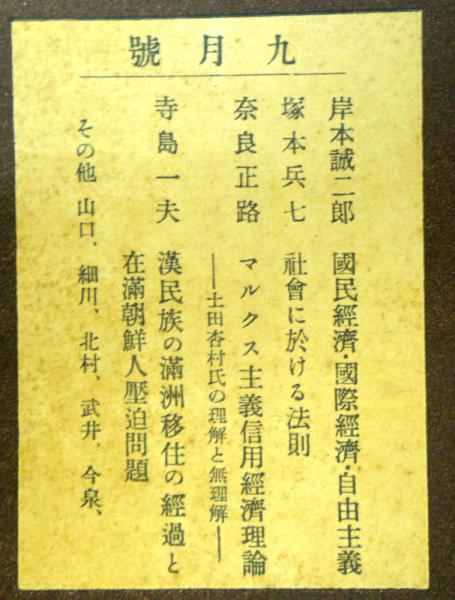 九月號
岸本誠二郎 國民經濟・國際經濟・自由主義
塚本兵七 社會に於ける法則
奈良正路 マルクス主義信用經濟理論
――土田杏村氏の理解と無理解――
寺島一夫 漢民族の滿洲移住の經過と
在滿朝鮮人壓迫問題
その他 山口、細川、北村、武井、今泉、